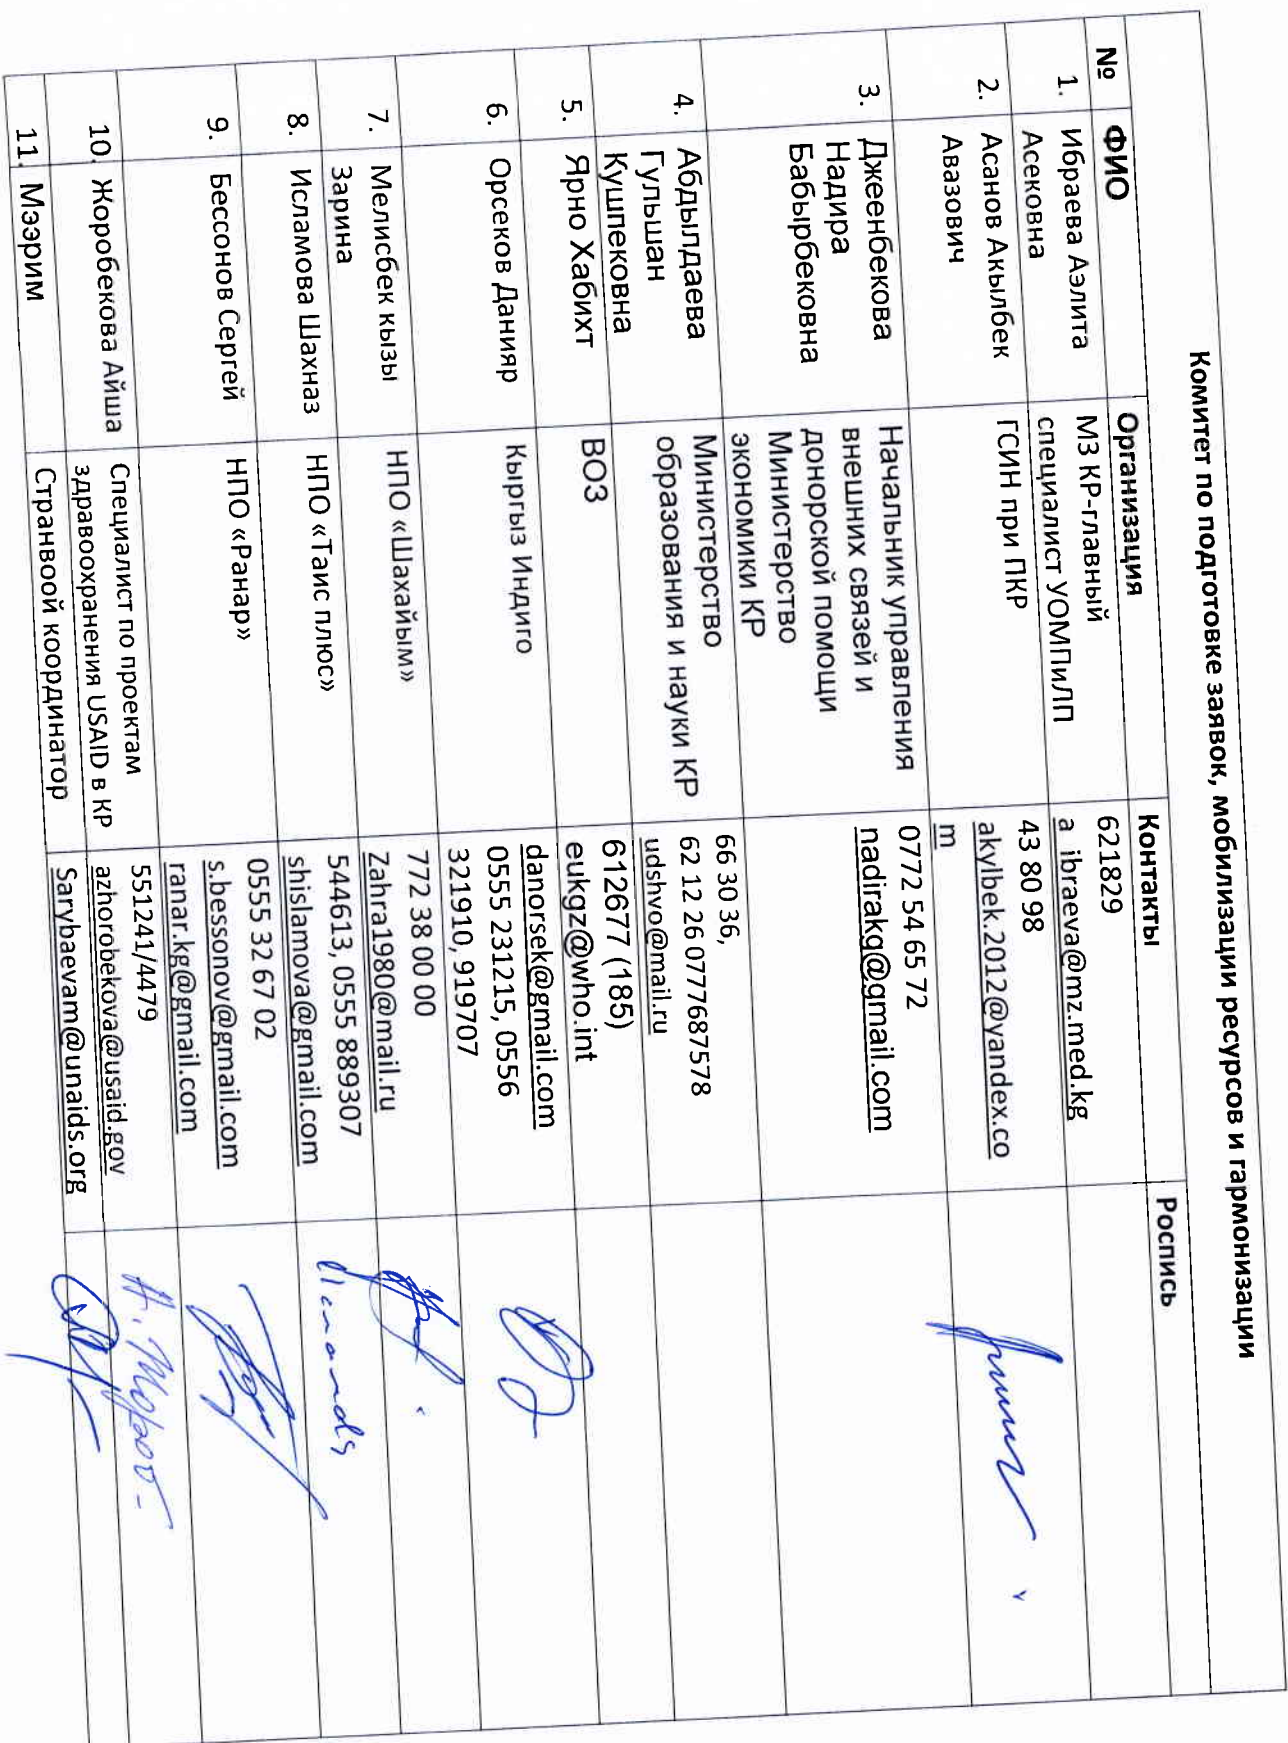 Комитет по подготовке заявок, мобилизации ресурсов и гармонизации
№ ФИО Организация Контакты Роспись
1. Ибраева Аэлита
Асековна
МЗ КР-главный
специалист УОМПиЛП
621829
a_ibraeva@mz.med.kg
2. Асанов Акылбек
Авазович
ГСИН при ПКР
43 80 98
akylbek.2012@yandex.co
m
3. Джеенбекова
Надира
Бабырбековна
Начальник управления
внешних связей и
донорской помощи
Министерство
экономики КР
0772 54 65 72
nadirakg@gmail.com
4. Абдылдаева
Гульшан
Кушпековна
Министерство
образования и науки КР
66 30 36,
62 12 26 0777687578
udshvo@mail.ru
5. Ярно Хабихт
ВОЗ
612677 (185)
eukgz@who.int
6. Орсеков Данияр
Кыргыз Индиго
danorsek@gmail.com
0555 231215, 0556
321910, 919707
7. Мелисбек кызы
Зарина
НПО «Шахайым»
772 38 00 00
Zahra1980@mail.ru
8. Исламова Шахназ
НПО «Таис плюс»
544613, 0555 889307
shislamova@gmail.com
9. Бессонов Сергей
НПО «Ранар»
0555 32 67 02
s.bessonov@gmail.com
ranar.kg@gmail.com
10. Жоробекова Айша
Специалист по проектам
здравоохранения USAID в КР
551241/4479
azhorobekova@usaid.gov
11. Мээрим
Странвоой координатор
Sarybaevam@unaids.org